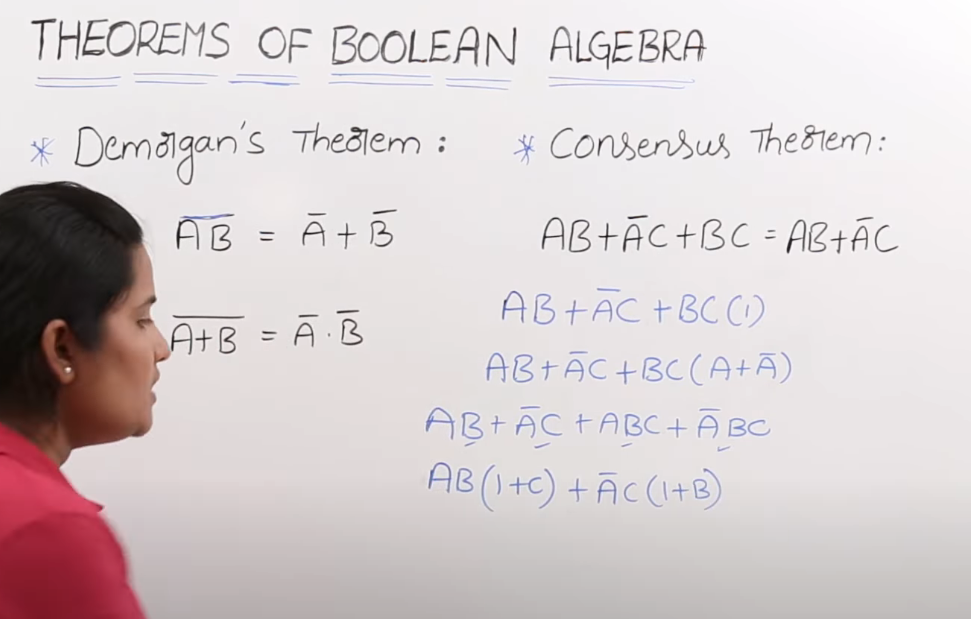 THEOREMS OF BOOLEAN ALGEBRA
* Demorgan's Theorem :
A̅B̅ = A̅ + B̅
A̅+̅B̅ = A̅ · B̅
* Consensus Theorem :
AB + A̅C + BC = AB + A̅C
AB + A̅C + BC (1)
AB + A̅C + BC (A + A̅)
AB + A̅C + ABC + A̅BC
AB (1+C) + A̅C (1+B)